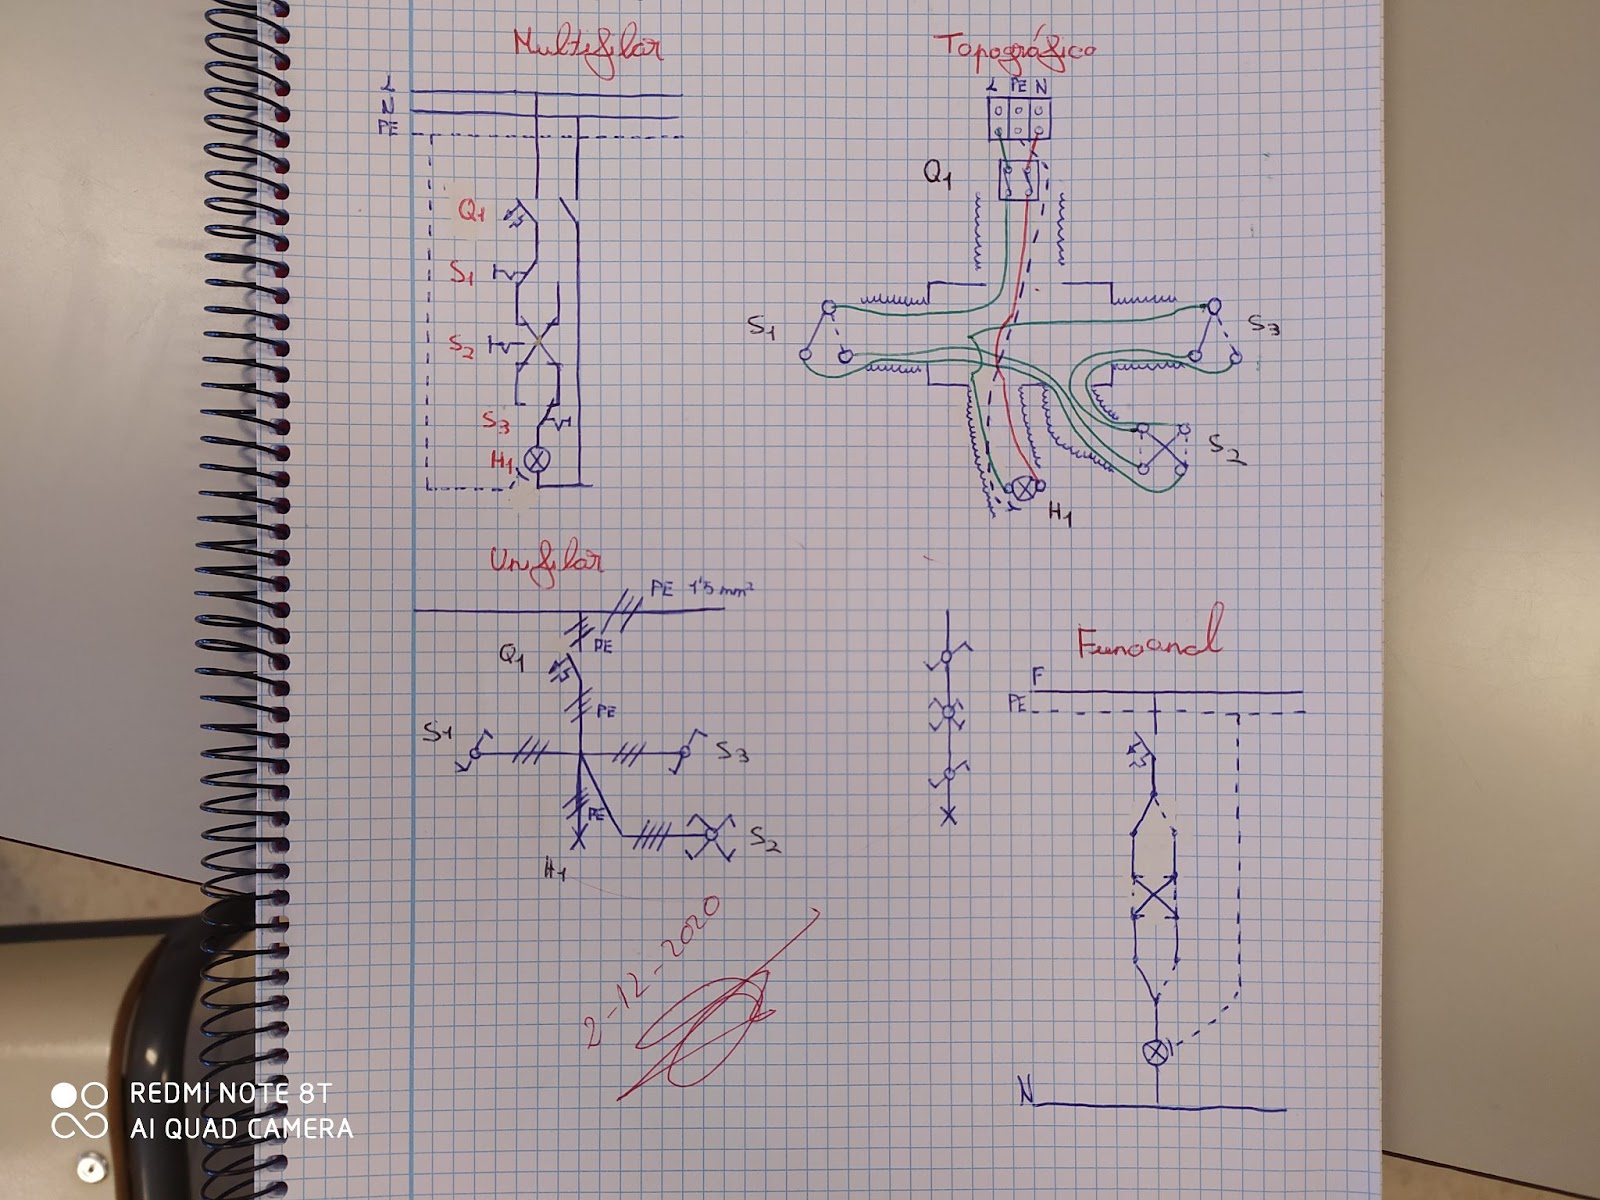 Multifilar
L
N
PE
Q1
S1
S2
S3
H1
Topográfico
L PE N
Q1
S1
S3
S2
H1
Unifilar
PE 1'5 mm²
PE
Q1
PE
S1
S3
PE
S2
H1
2-12-2020
F
PE
N
REDMI NOTE 8T
AI QUAD CAMERA